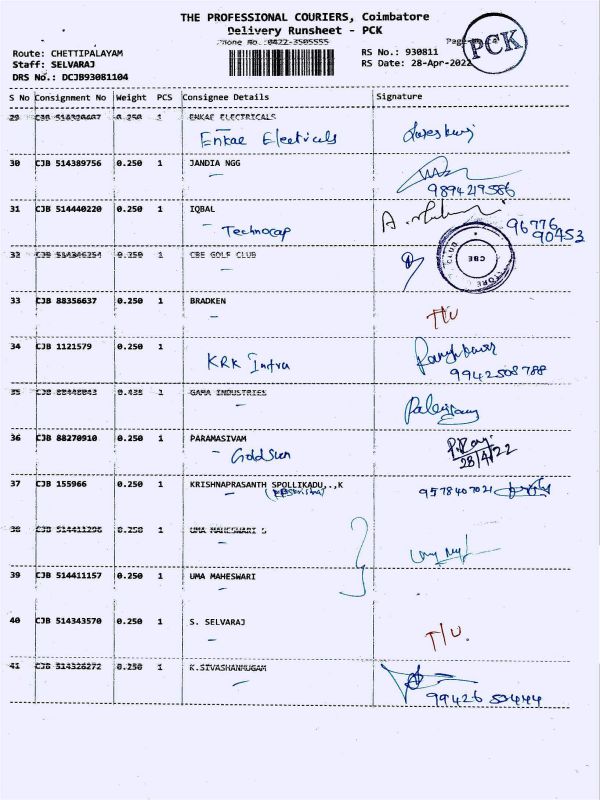 THE PROFESSIONAL COURIERS, Coimbatore
Delivery Runsheet - PCK
Phone No.:0422-3505555
Route: CHETTIPALAYAM
Staff: SELVARAJ
DRS No.: DCJB93081104
Page
PCK
RS No.: 930811
RS Date: 28-Apr-2022
S No Consignment No Weight PCS Consignee Details Signature
29 CJB 0.250 1 ENKAE ELECTRICALS
Enkae Electricals
30 CJB 514389756 0.250 1 JANDIA NGG
9894219586
31 CJB 514440220 0.250 1 IQBAL
Technocap
96776
90453
32 CJB 0.250 1 CBE GOLF CLUB
CLUB CBE
33 CJB 88356637 0.250 1 BRADKEN
T/U
34 CJB 1121579 0.250 1
KRK Infra
9942508788
35 CJB 0.435 1 GAMA INDUSTRIES
36 CJB 88270910 0.250 1 PARAMASIVAM
Goldsun
28/4/22
37 CJB 155966 0.250 1 KRISHNAPRASANTH SPOLLIKADU,.,K
9578407021
38 CJB 514411296 0.250 1 UMA MAHESWARI S
39 CJB 514411157 0.250 1 UMA MAHESWARI
40 CJB 514343570 0.250 1 S. SELVARAJ
T/U.
41 CJB 514326272 0.250 1 K.SIVASHANMUGAM
99426 50444